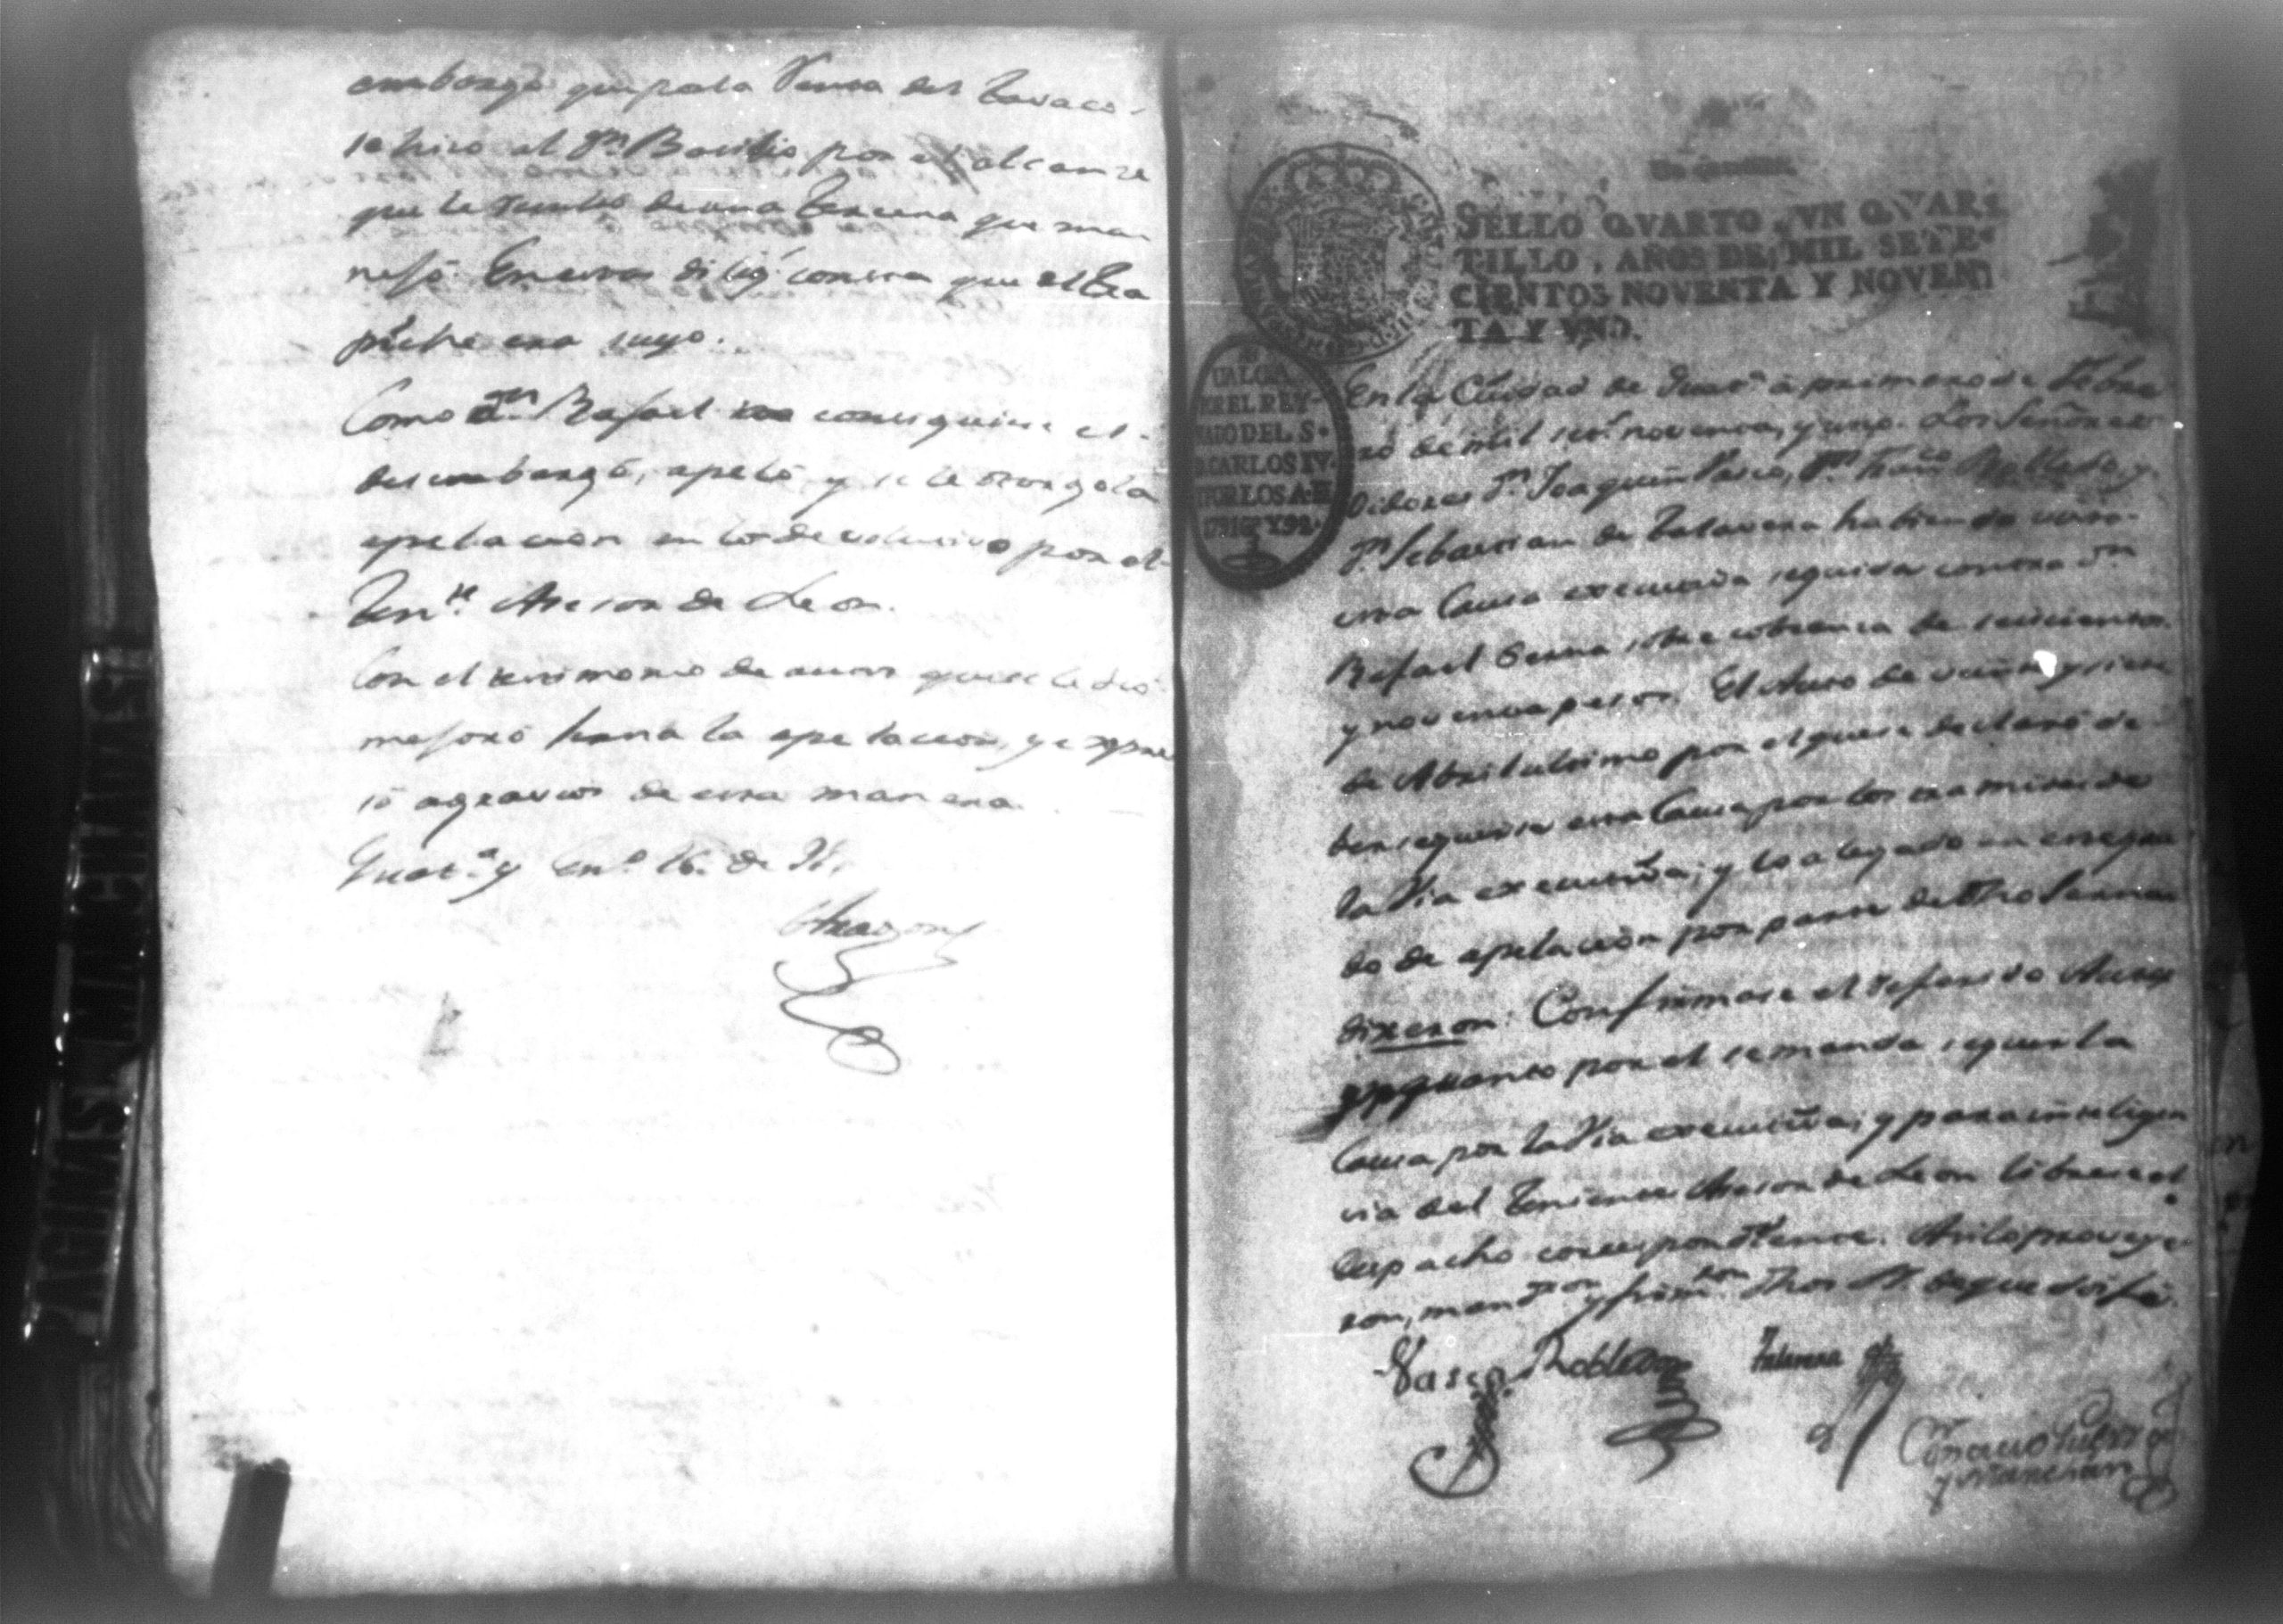 embargo que para la Renta del Tavaco
se hizo al Dn. Basilio por el alcanze
que le resultó de una tercena que ma-
nejó. En estas dilig.s consta que el tra
piche era suyo.
Como Dn. Rafael no consiguiese el
desembargo, apeló, y se le otorgó la
apelacion en lo devolutivo por el
Ten.te Asesor de Leon.
Con el testimonio de autos que se le dió
mejoró la apelacion, y expre
só agravios de esta manera.
Guat.a y En.o 16. de 91.
Aragon
Un quartillo
SELLO QVARTO, VN QVAR-
TILLO, AÑOS DE MIL SETE-
CIENTOS NOVENTA Y NOVEN-
TA Y VNO.
VALGA
POR EL REY-
NADO DEL S.
D. CARLOS IV.
POR LOS A. D
1791 Y 92
En la Ciudad de Guat.a à primero de Febre
ro de mil set.s noventa, y uno. Los Señores
Oidores Dn. Joaquin Vasco, Dn. Fran.co Robledo, y
Dn. Sebastian de Talavera habiendo visto
esta Causa executiva seguida contra Dn.
Rafael Serna sobre cobranza de seiscientos
y noventa pesos. El Auto de veinte y siete
de Abril ultimo por el que se declaró de-
ber seguirse esta Causa por los tramites de
la Via executiva; y lo alegado en el gra
do de apelacion por parte de dho Serna
dixeron: Confirmase el referido Auto
en quanto por el se manda seguir la
Causa por la Via executiva; y para inteligen
cia del Teniente Asesor de Leon librese el
despacho correspondiente. Asi lo proveye-
ron, mandaron y firmaron dhos SS. de que doi fé.
Vasco Robledo Talavera